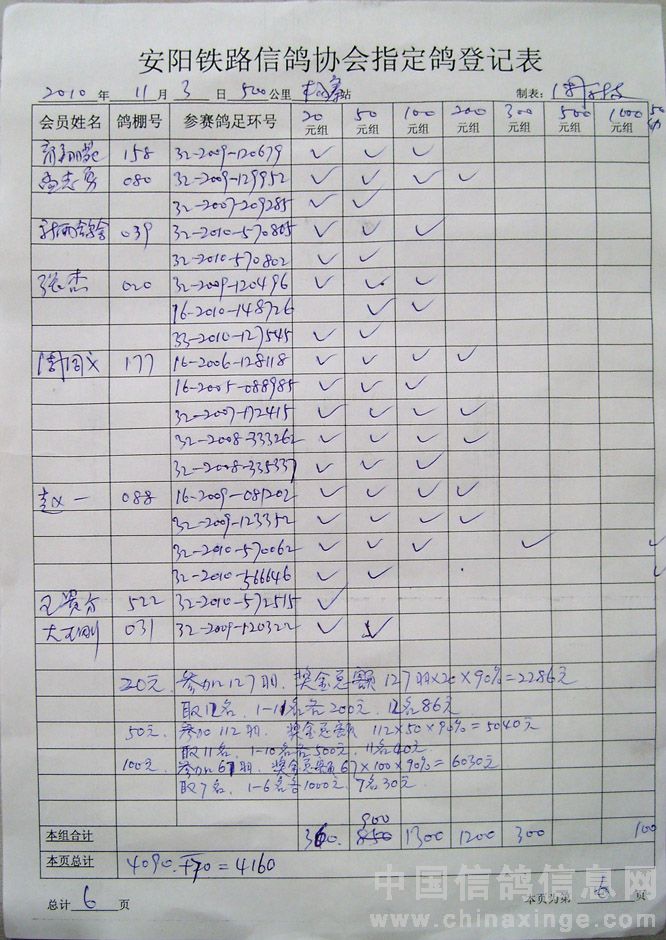 安阳铁路信鸽协会指定鸽登记表
2010 年 11 月 3 日 500公里 站 制表:
会员姓名 鸽棚号 参赛鸽足环号 20元组 50元组 100元组 200元组 300元组 500元组 1000元组
158 32-2009-120679 ✓ ✓ ✓
080 32-2009-129952 ✓ ✓ ✓ ✓
32-2007-209285 ✓ ✓
039 32-2010-570805 ✓ ✓ ✓
32-2010-570802 ✓ ✓
张杰 020 32-2009-120496 ✓ ✓ ✓
16-2010-148726 ✓ ✓
33-2010-127545 ✓ ✓
177 16-2006-128118 ✓ ✓ ✓ ✓
16-2005-088985 ✓ ✓ ✓
32-2007-172415 ✓ ✓ ✓ ✓
32-2008-333262 ✓ ✓ ✓ ✓
32-2008-335337 ✓ ✓ ✓
赵一 088 16-2009-081202 ✓ ✓ ✓ ✓
32-2009-123352 ✓ ✓ ✓ ✓
32-2010-570062 ✓ ✓ ✓ ✓ ✓
32-2010-566646 ✓ ✓ ✓
522 32-2010-572515 ✓
031 32-2009-120322 ✓ ✓
20元. 参加127羽. 奖金总额 127羽×20×90%=2286元
取12名, 1-11名各200元. 12名86元
50元. 参加112羽. 奖金总额 112×50×90%=5040元
取11名, 1-10名各500元, 11名40元.
100元. 参加67羽. 奖金总额67×100×90%=6030元
取7名, 1-6名各1000元, 7名30元.
900
本组合计 360. 850 1300 1200 300 100
本页总计 4090.+70=4160
总计 6 页 本页为第 6 页
中国信鸽信息网
www.chinaxinge.com